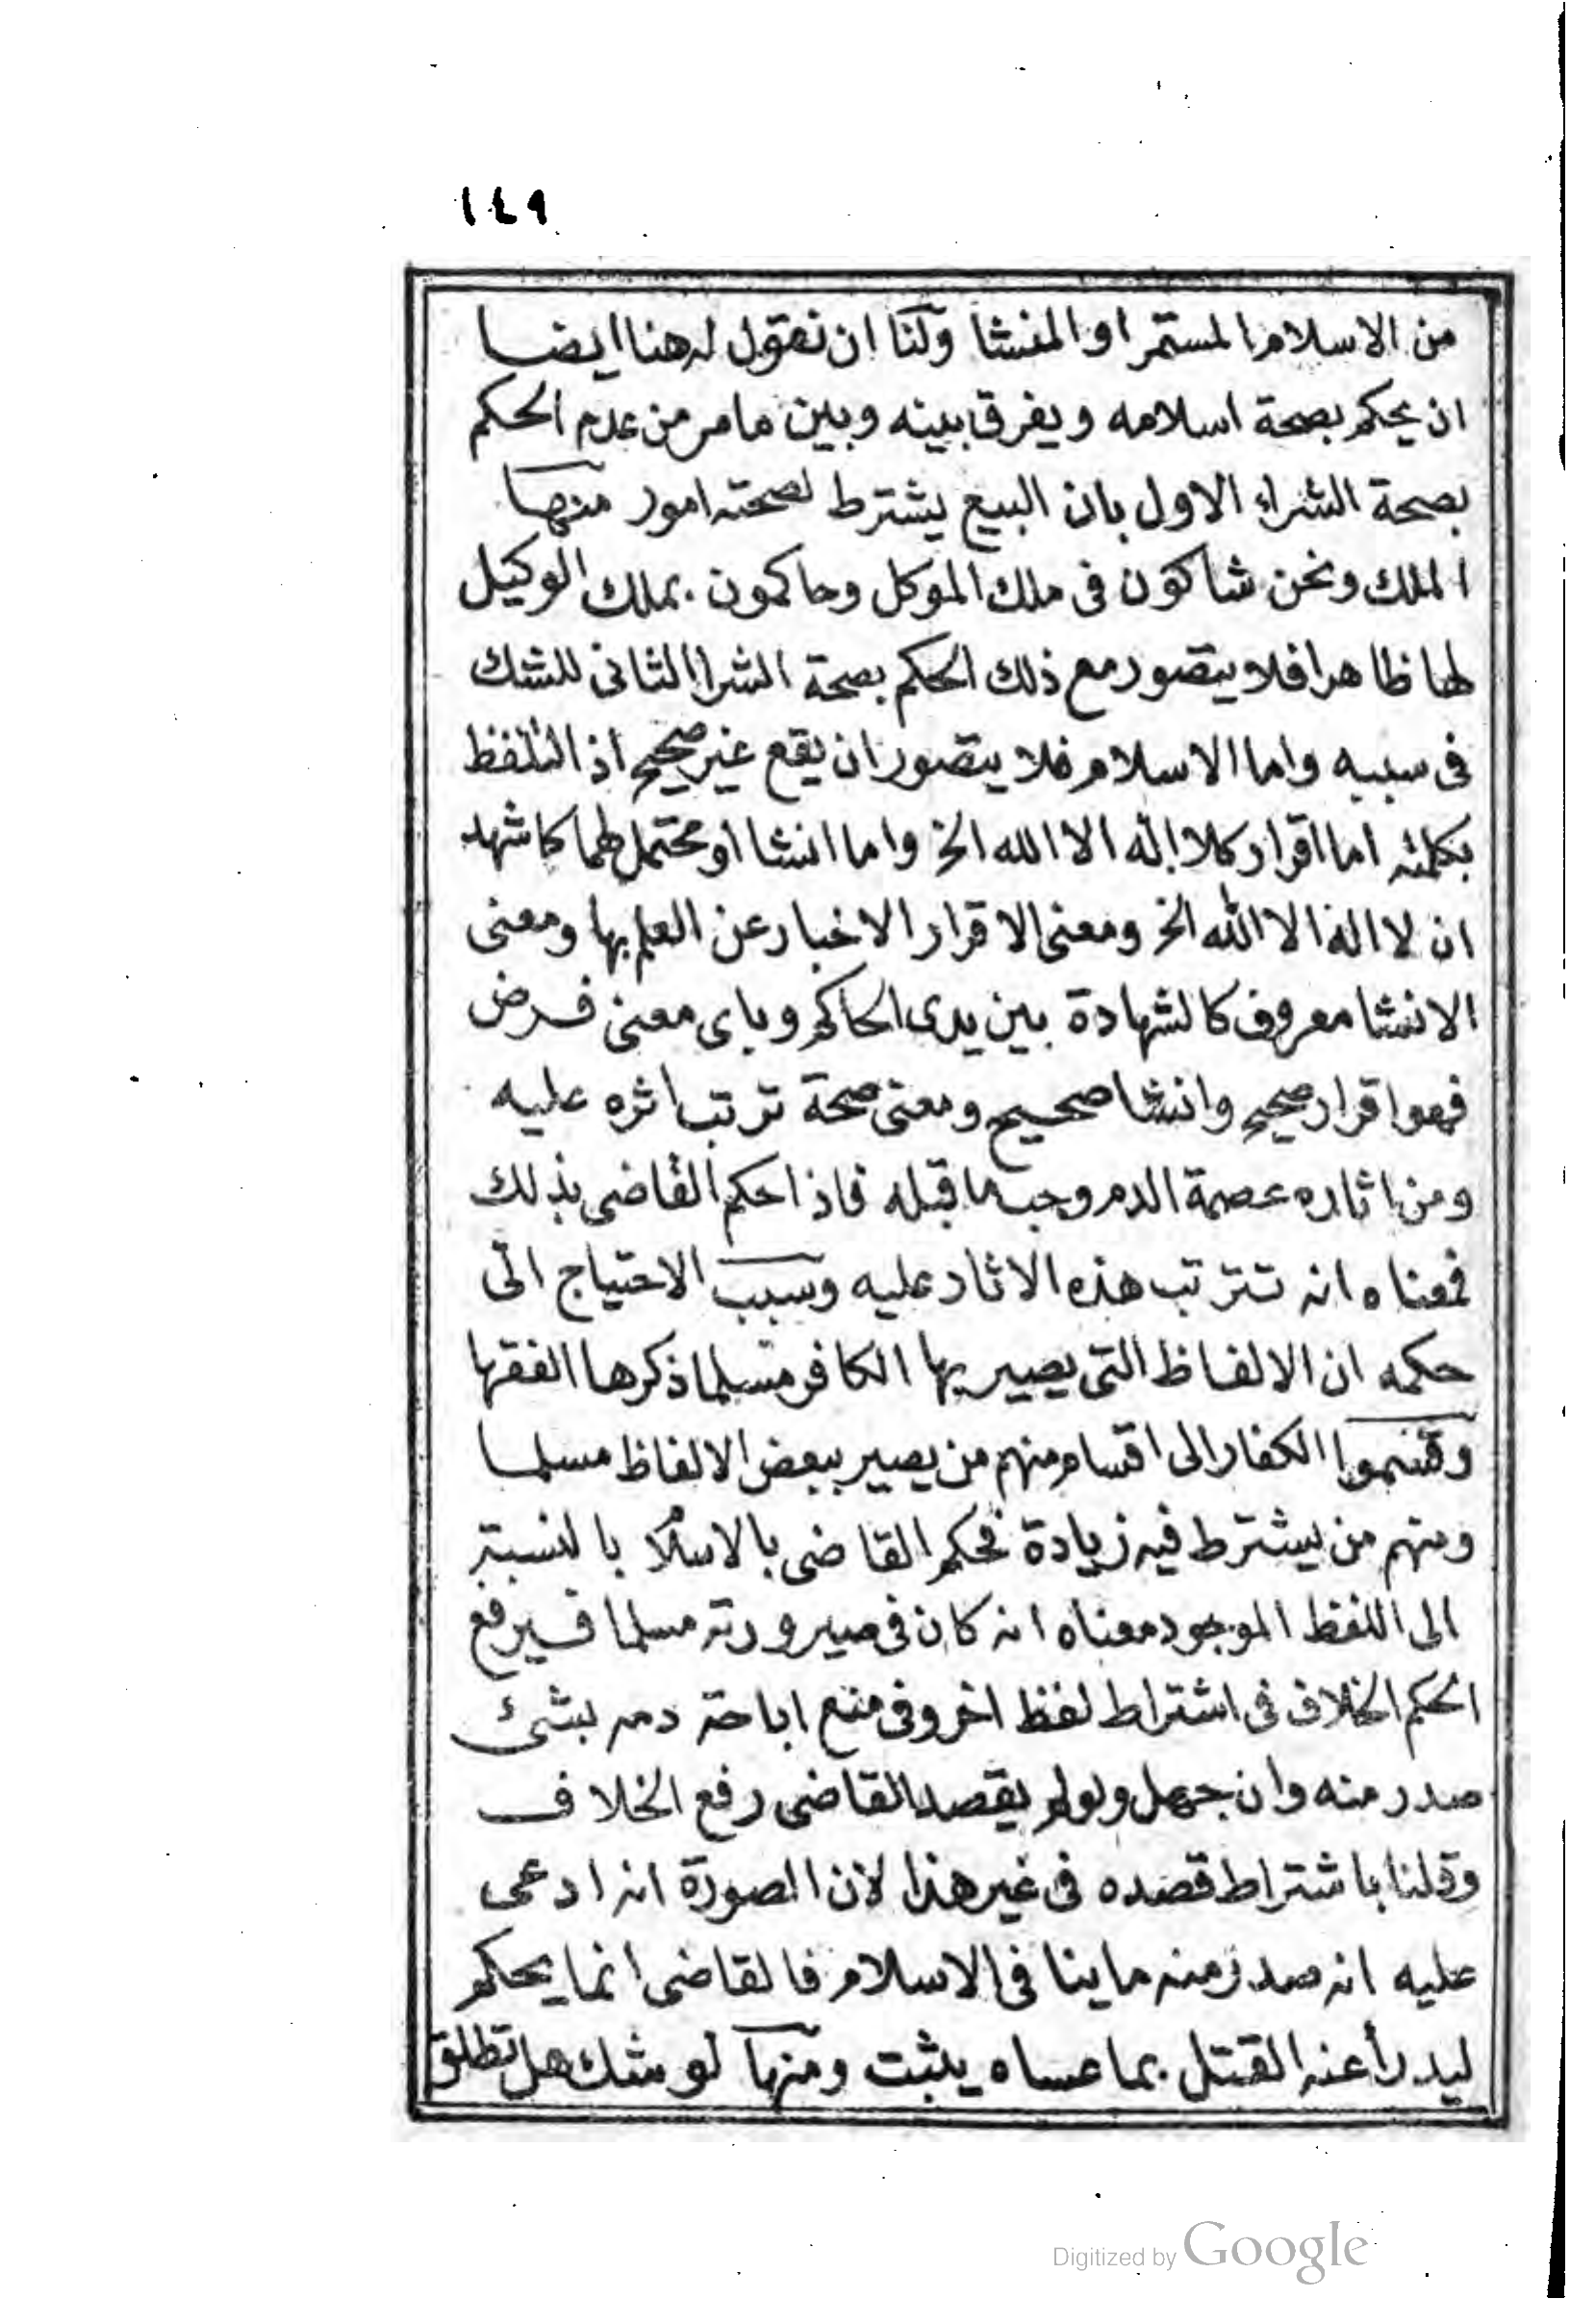 ١٤٩
من الاسلام المستمر او المنشا ولنا ان نقول له هنا ايضا
ان يحكم بصحة اسلامه ويفرق بينه وبين ما مر من عدم الحكم
بصحة الشراء الاول بان البيع يشترط لصحته امور منها
الملك ونحن شاكون فى ملك الموكل وحاكمون بملك الوكيل
لها ظاهرا فلا يتصور مع ذلك الحكم بصحة الشرا الثانى للشك
فى سببه واما الاسلام فلا يتصور ان يقع غير صحيح اذ التلفظ
بكلمته اما اقرار كلا اله الا الله الخ واما انشا او محتمل لهما كاشهد
ان لا اله الا الله الخ ومعنى الاقرار الاخبار عن العلم بها ومعنى
الانشا معروف كالشهادة بين يدى الحاكم وباى معنى فرض
فهو اقرار صحيح وانشا صحيح ومعنى صحة ترتب اثره عليه
ومن اثاره عصمة الدم وجب ما قبله فاذا حكم القاضى بذلك
فمعناه انه تترتب هذه الاثار عليه وسبب الاحتياج الى
حكمه ان الالفاظ التى يصير بها الكافر مسلما ذكرها الفقها
وقسموا الكفار الى اقسام منهم من يصير ببعض الالفاظ مسلما
ومنهم من يشترط فيه زيادة فحكم القاضى بالاسلام بالنسبة
الى اللفظ الموجود معناه انه كان فى صيرورته مسلما فيرفع
الحكم الخلاف فى اشتراط لفظ اخر وفى منع اباحة دمه بشئ
صدر منه وان جهل ولو لم يقصد القاضى رفع الخلاف
وقلنا باشتراط قصده فى غير هذا لان الصورة انه ادعى
عليه انه صدر منه ما ينافى الاسلام فالقاضى انما يحكم
ليدرأ عنه القتل بما عساه يثبت ومنها لو شك هل تطلق
Digitized by Google